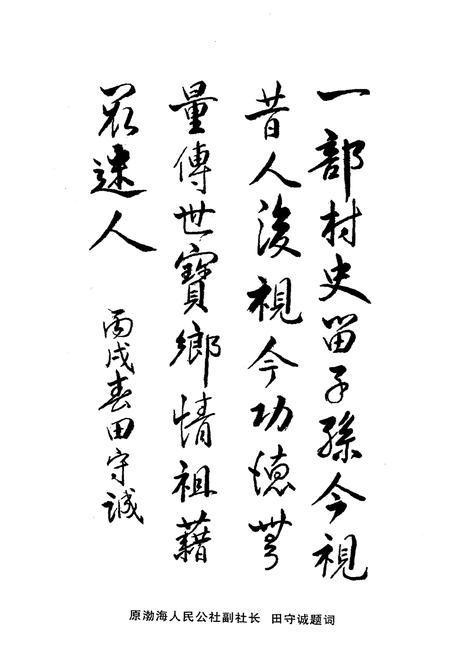 一部村史留子孫今視
昔人後視今功德無
量傳世寶鄉情祖藉
最迷人
丙戌春田守誠
原渤海人民公社副社长 田守诚题词